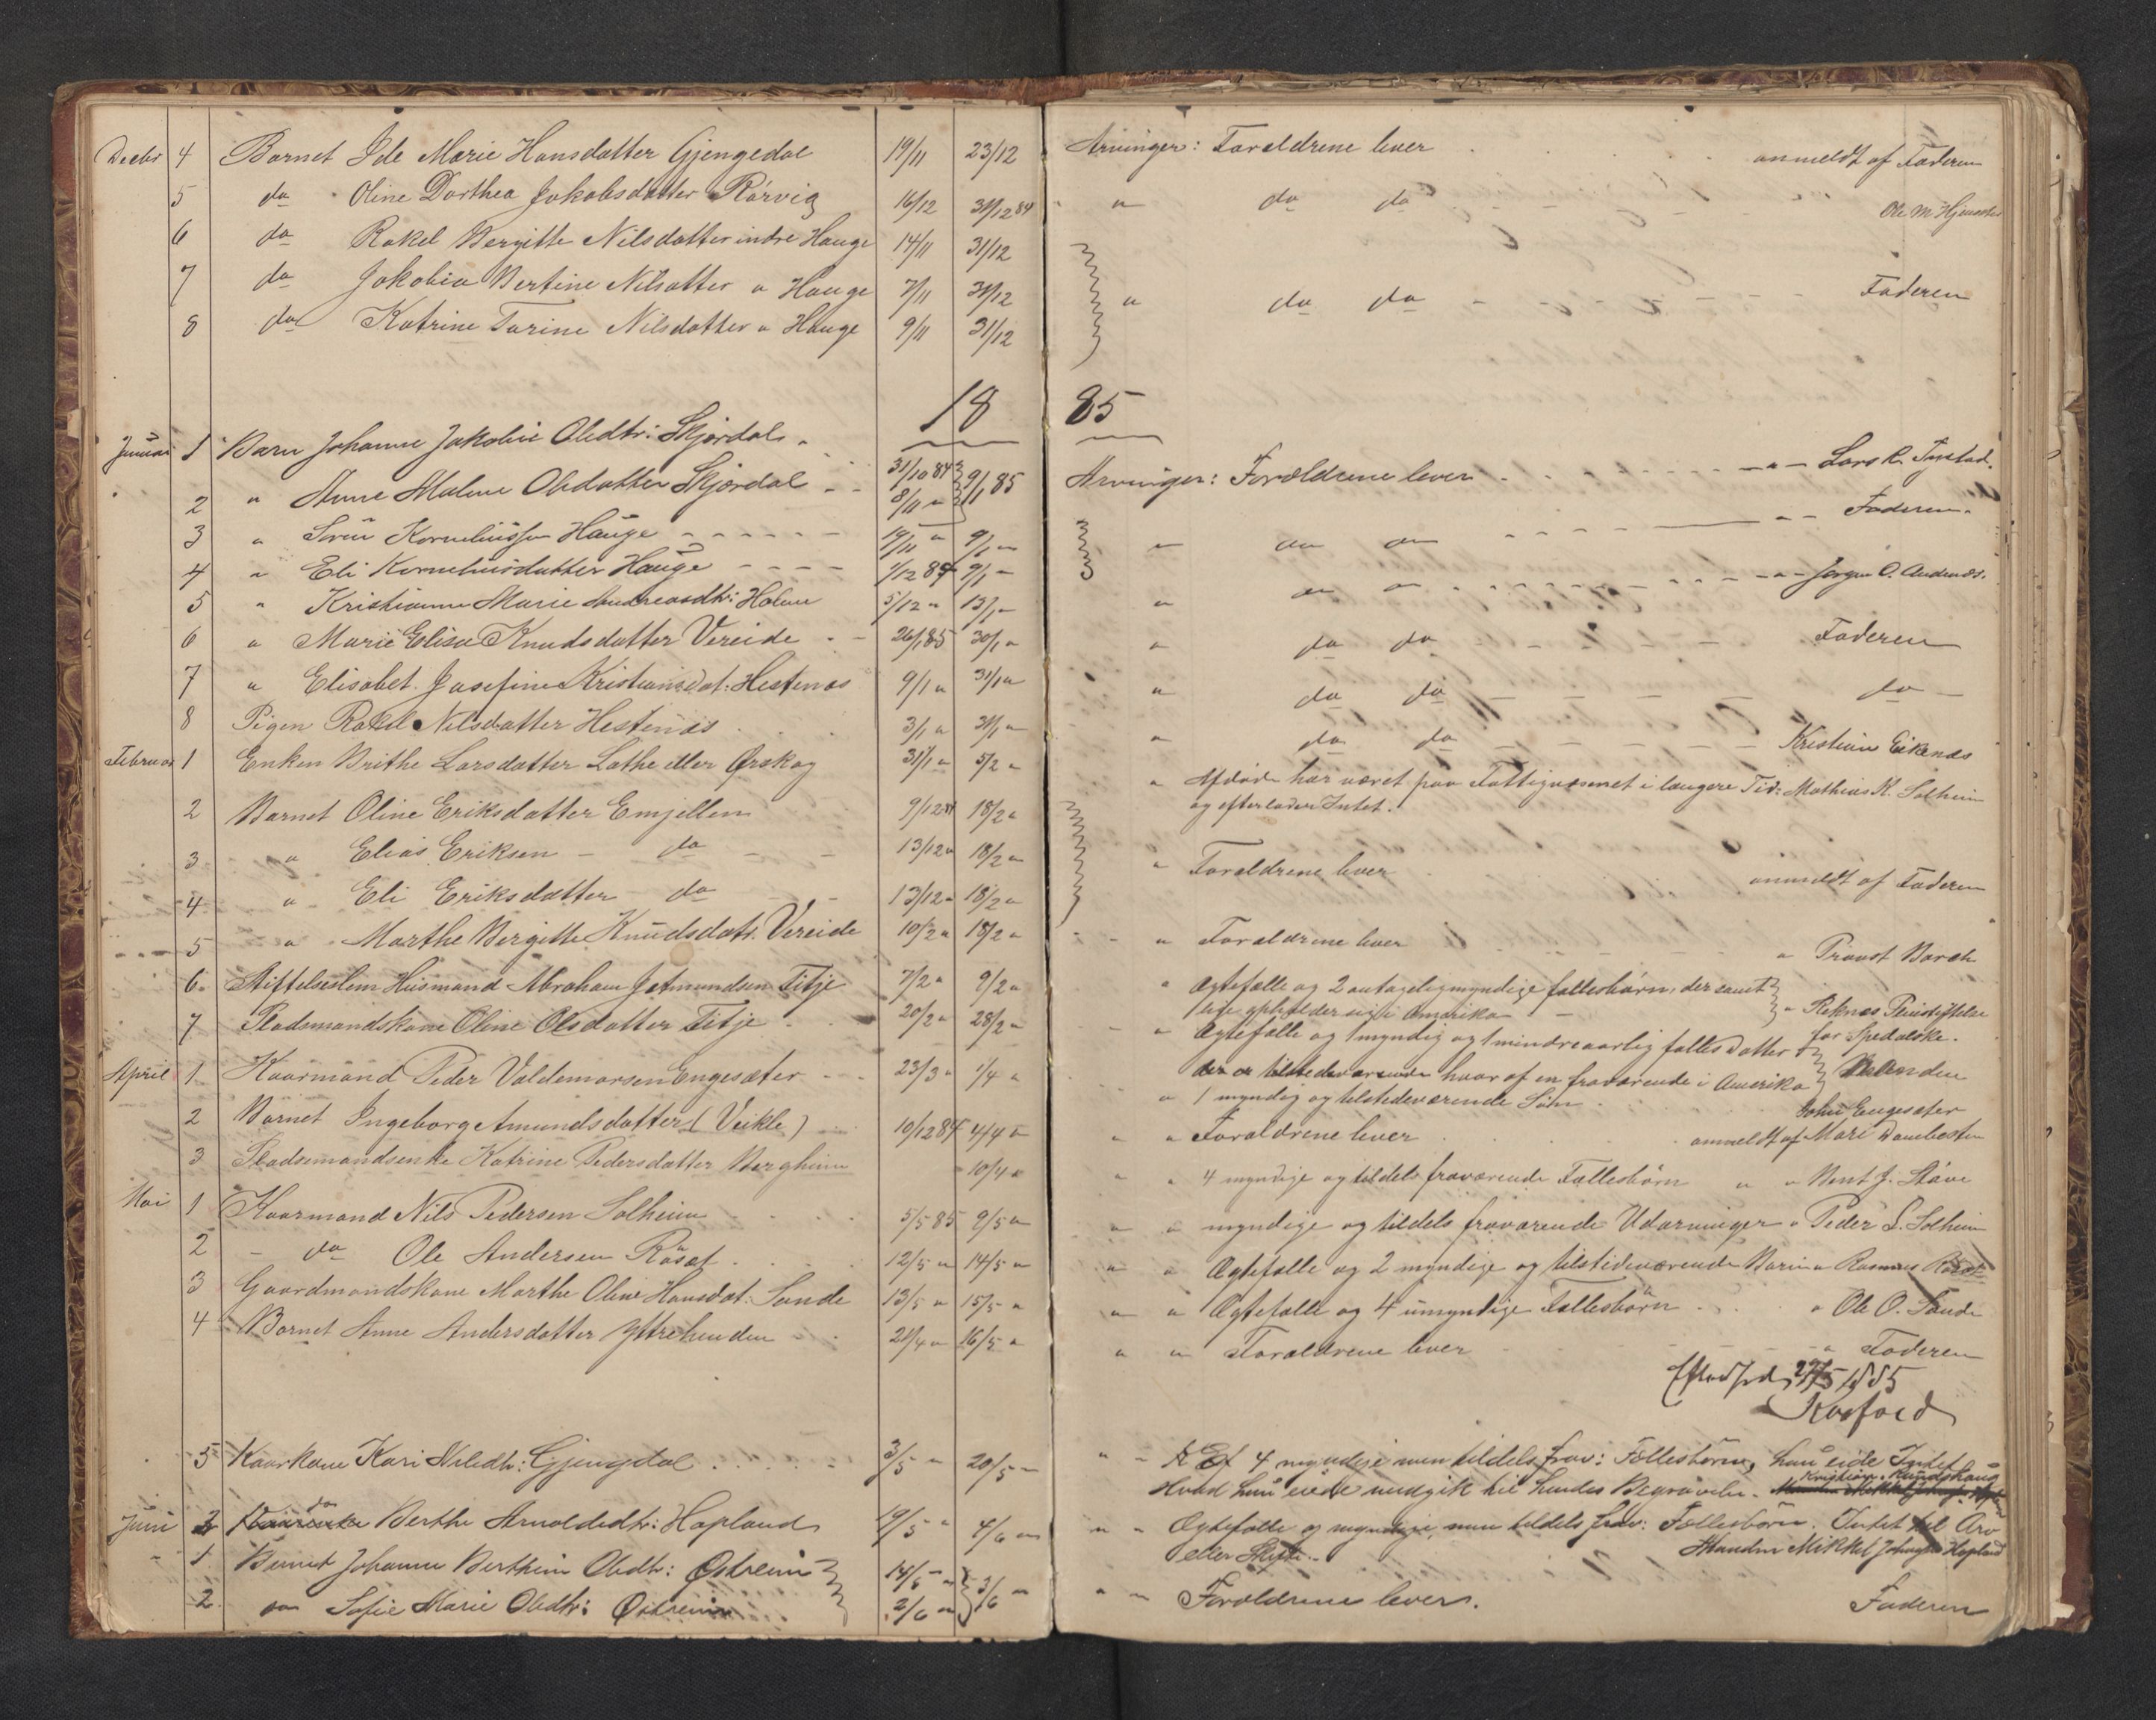 Decbr 4 Barnet Ide Marie Hansdatter Gjengedal 19/11 23/12 Arvinger: Forældrene lever anmeldt af Faderen
5 do Oline Dorthea Jakobsdatter Rörvig 16/12 31/12 84 " do do Ole M
6 do Rakel Bergitte Nilsdatter indre Hauge 14/11 31/12
7 do Jakobia Bertine Nilsatter " Hauge 7/11 31/12 " do do Faderen
8 do Katrine Tarine Nilsdatter " Hauge 9/11 31/12
1885
Januar 1 Barn Johanne Jakobie Olsdtr: Skjærdal 31/10 84 Arvinger: Forældrene lever " Lars R.
2 " Anne Malene Olsdatter Skjærdal 8/11 " 9/1 85
3 " Sörin Korneliussen Hauge 19/11 " 9/1 " " do do " Faderen.
4 " Eli Korneliusdatter Hauge 1/12 84 9/1 "
5 " Kristianne Marie Andreasdtr: Holme 5/12 " 13/1 " " do do " Jørgen O. Andenæs.
6 " Marie Elisa Knudsdatter Vereide 26/1 85 30/1 " " do do Faderen
7 " Elisabet Josefine Kristiansdat: Hestenæs 9/1 " 31/1 " " do do do
8 Pigen Rakel Nilsdatter Hestenæs 3/1 " 31/1 " " do do Kristian Eikenæs
Februar 1 Enken Brithe Larsdatter Lothe eller Ørskog 31/1 " 5/2 " " Afdøde har været paa Fattigvæsenet i længere Tid: Mathias K. Solheim
og efterlader Intet.
2 Barnet Oline Eriksdatter Emjellem 9/12 84 18/2 "
3 " Elias Eriksen do 13/12 " 18/2 " " Forældrene lever anmeldt af Faderen
4 " Eli Eriksdatter do 13/12 " 18/2 "
5 " Marthe Bergitte Knudsdatr. Vereide 10/2 " 18/2 " " Forældrene lever " Provst Barch
6 Stiftelseslem Husmand Abraham Jetmundsen Fitje 7/2 " 9/2 " " Ægtefælle og 2 antagelig myndige fællesbörn, der samt-
lige opholder sig i Amerika " Reknæs Pleiestiftelse
for Spedalske.
7 Pladsmandskone Oline Olsdatter Fitje 20/2 " 28/2 " " Ægtefælle og 1 myndig og 1 mindreaarlig fælles Datter
der er tilstedeværende hvoraf en fraværende i Amerika Manden
April 1 Kaarmand Peder Valdemarsen Engesæter 23/3 " 1/4 " " 1 myndig og tilstedeværende Sön John Engesæter
2 Barnet Ingeborg Amundsdatter (Veikle) 10/12 84 4/4 " " " Forældrene lever anmeldt af Mari
3 Pladsmandsenke Katrine Pedersdatter Bergheim 10/4 " " " 4 myndige og tildels fraværende Fællesbörn " " Bent J. Støve
Mai 1 Kaarmand Nils Pedersen Solheim 5/5 85 9/5 " " " myndige og tildels fraværende Udarvinger " Peder S. Solheim
2 do Ole Andersen Rösæt 12/5 " 14/5 " " " Ægtefælle og 2 myndige og tilstedeværende Börn " Rasmus Rösæt
3 Gaardmandskone Marthe Oline Hansdat. Sande 13/5 " 15/5 " " " Ægtefælle og 4 umyndige Fællesbörn " Ole O. Sande
4 Barnet Anne Andersdatter Ytrehenden 21/4 " 16/5 " " " Forældrene lever " Faderen
29/5 1885
5 Kaarkone Kari Nilsdtr: Gjengedal 3/5 " 20/5 " " " 4 myndige men tildels frav: Fællesbörn, hun eide Intet
Hvad hun eiede medgik til hendes Begravelse.
Juni 2 do Berthe Arnoldsdtr: Hopland 19/5 " 4/6 " " " Ægtefælle og myndige, men tildels frav: Fællesbörn. Intet til Arv
eller Skifte. Manden Mikkel Hopland
1 Barnet Johanne Berthine Olsdtr: Østreim 14/5 "
2 do Sofie Marie Olsdtr: Østreim 2/6 " 3/6 " " " Forældrene lever. Faderen